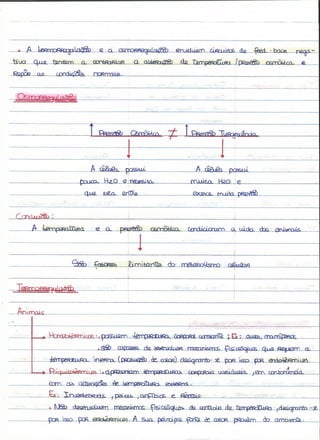 • A termorregulação e a osmorregulação envolvem circuitos de feed-back nega-
tivo que tentam a contrariar a alteração de temperatura / pressão osmótica e
repor as condições normais.
Osmorregulação
↑ Pressão Osmótica ≠ ↑ Pressão Turgescência
A célula possui
pouca H2O e necessita
que ela entre
A célula possui
muita H2O e
exerce muita pressão
Conclusão:
A temperatura e a pressão osmótica condicionam a vida dos animais
São fatores limitantes do metabolismo celular
Termorregulação
Animais
→ Homeotérmicos: possuem temperatura corporal constante; Ex: aves, mamíferos.
, são capazes de desenvolver mecanismos fisiológicos que regulam a
temperatura interna (produção de calor) designando-se por isso por endotérmicos.
→ Poiquilotérmicos: apresentam temperatura corporais variáveis, em consonância
com as alterações de temperatura externa.
Ex: Invertebrados, peixes, anfíbios e répteis
• Não desenvolvem mecanismos fisiológicos de controlo de temperatura, designando-se
por isso por exotérmicos. A sua principal fonte de calor provém do ambiente.